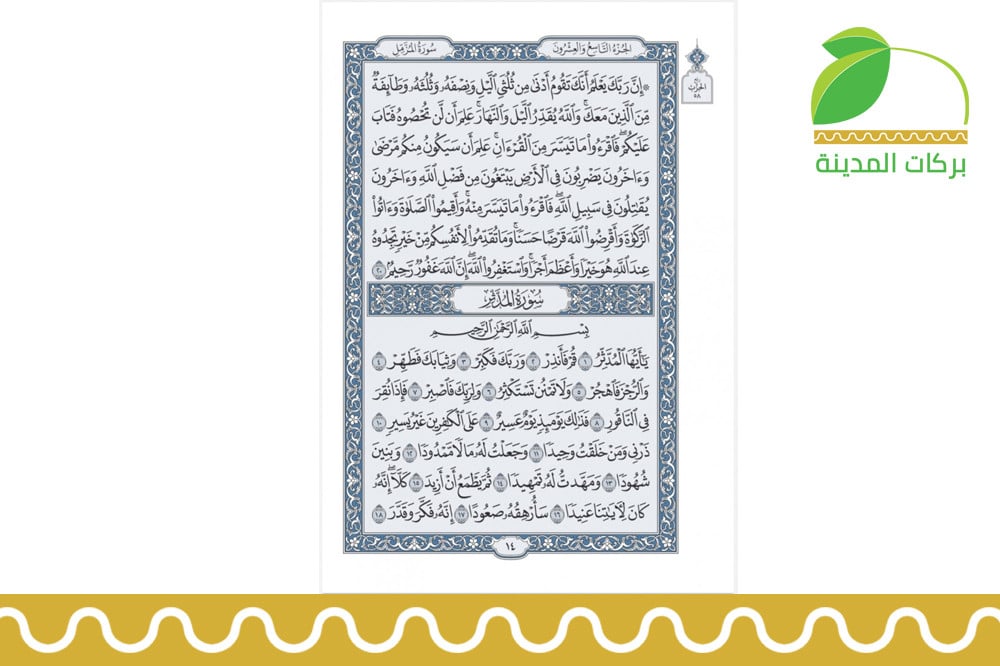 سُورَةُ المُزَّمِّل
الجُزءُ التَّاسِعُ وَالعِشْرُونَ
الحِزْبُ
٥٨
بركات المدينة
۞ إِنَّ رَبَّكَ يَعْلَمُ أَنَّكَ تَقُومُ أَدْنَىٰ مِن ثُلُثَيِ ٱلَّيْلِ وَنِصْفَهُۥ وَثُلُثَهُۥ وَطَآئِفَةٌ
مِّنَ ٱلَّذِينَ مَعَكَۚ وَٱللَّهُ يُقَدِّرُ ٱلَّيْلَ وَٱلنَّهَارَۚ عَلِمَ أَن لَّن تُحْصُوهُ فَتَابَ
عَلَيْكُمْۖ فَٱقْرَءُوا۟ مَا تَيَسَّرَ مِنَ ٱلْقُرْءَانِۚ عَلِمَ أَن سَيَكُونُ مِنكُم مَّرْضَىٰ
وَءَاخَرُونَ يَضْرِبُونَ فِى ٱلْأَرْضِ يَبْتَغُونَ مِن فَضْلِ ٱللَّهِ وَءَاخَرُونَ
يُقَٰتِلُونَ فِى سَبِيلِ ٱللَّهِۖ فَٱقْرَءُوا۟ مَا تَيَسَّرَ مِنْهُۚ وَأَقِيمُوا۟ ٱلصَّلَوٰةَ وَءَاتُوا۟
ٱلزَّكَوٰةَ وَأَقْرِضُوا۟ ٱللَّهَ قَرْضًا حَسَنًاۚ وَمَا تُقَدِّمُوا۟ لِأَنفُسِكُم مِّنْ خَيْرٍ تَجِدُوهُ
عِندَ ٱللَّهِ هُوَ خَيْرًا وَأَعْظَمَ أَجْرًاۚ وَٱسْتَغْفِرُوا۟ ٱللَّهَۖ إِنَّ ٱللَّهَ غَفُورٌ رَّحِيمٌۢ ٢٠
سُورَةُ المُدَّثِّر
بِسْمِ ٱللَّهِ ٱلرَّحْمَٰنِ ٱلرَّحِيمِ
يَٰٓأَيُّهَا ٱلْمُدَّثِّرُ ١ قُمْ فَأَنذِرْ ٢ وَرَبَّكَ فَكَبِّرْ ٣ وَثِيَابَكَ فَطَهِّرْ ٤
وَٱلرُّجْزَ فَٱهْجُرْ ٥ وَلَا تَمْنُن تَسْتَكْثِرُ ٦ وَلِرَبِّكَ فَٱصْبِرْ ٧ فَإِذَا نُقِرَ
فِى ٱلنَّاقُورِ ٨ فَذَٰلِكَ يَوْمَئِذٍ يَوْمٌ عَسِيرٌ ٩ عَلَى ٱلْكَٰفِرِينَ غَيْرُ يَسِيرٍ ١٠
ذَرْنِى وَمَنْ خَلَقْتُ وَحِيدًا ١١ وَجَعَلْتُ لَهُۥ مَالًا مَّمْدُودًا ١٢ وَبَنِينَ
شُهُودًا ١٣ وَمَهَّدتُّ لَهُۥ تَمْهِيدًا ١٤ ثُمَّ يَطْمَعُ أَنْ أَزِيدَ ١٥ كَلَّآۖ إِنَّهُۥ
كَانَ لِـَٔايَٰتِنَا عَنِيدًا ١٦ سَأُرْهِقُهُۥ صَعُودًا ١٧ إِنَّهُۥ فَكَّرَ وَقَدَّرَ ١٨
١٤